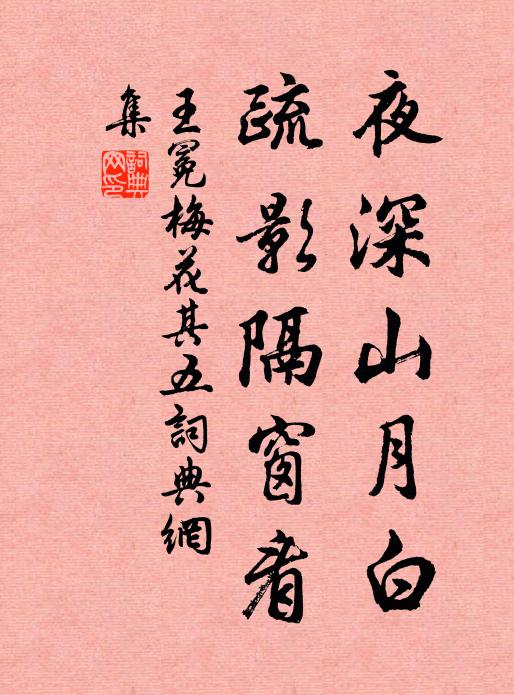 夜深山月白
疏影隔窗看
王冕梅花其五詞典網
集
詞典
网印